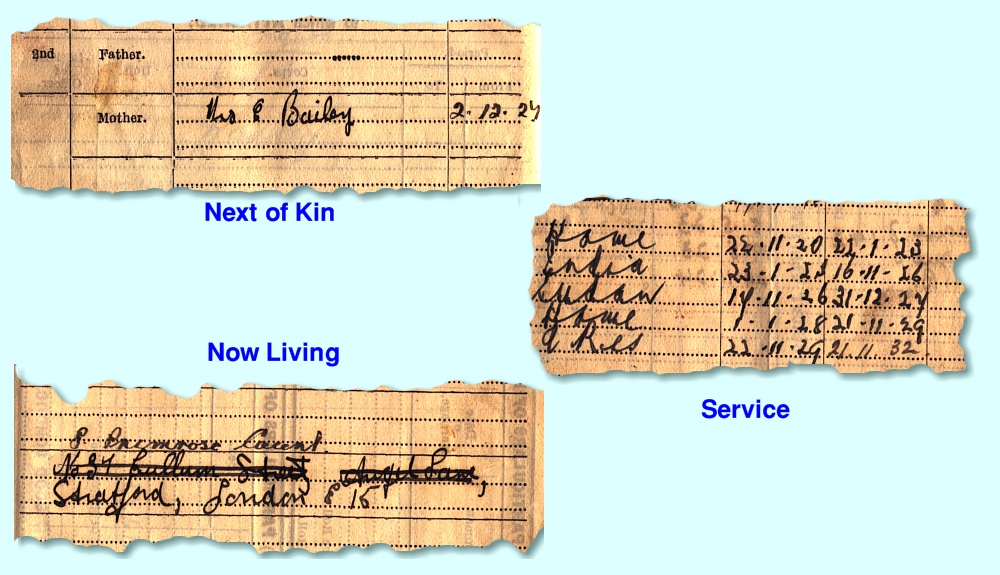 2nd Father.
Mother. Mrs E Bailey 2.12.27
Next of Kin
Home 22.11.20 22.1.23
India 23.1.23 16.11.26
Sudan 17.11.26 31.12.27
Home 1.1.28 21.11.29
A Res 22.11.29 21.11.32
Service
Now Living
8 Primrose Court
No 37 Cullum Street, Angel Lane,
Stratford, London E 15